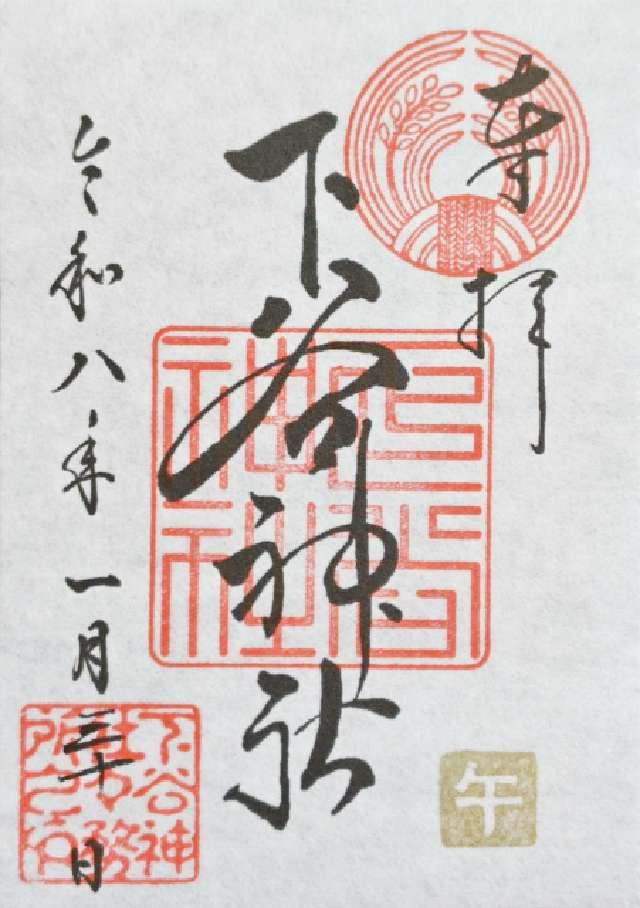 奉拝
下谷神社
下谷神社
令和八年一月三十日
下谷神社社務所之印
午